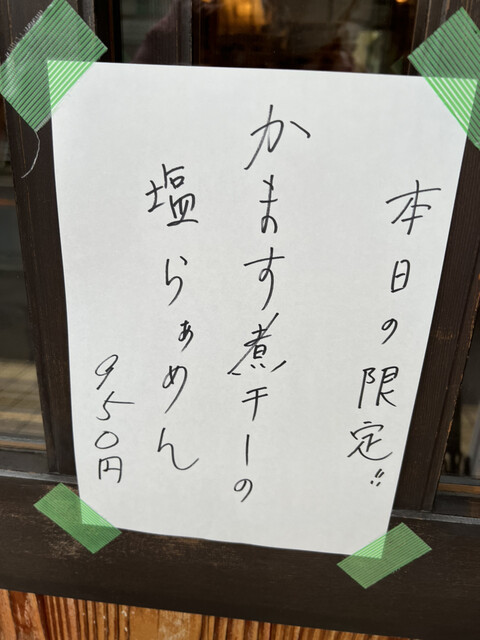 本日の限定!!
かます煮干しの
塩らぁめん
950円